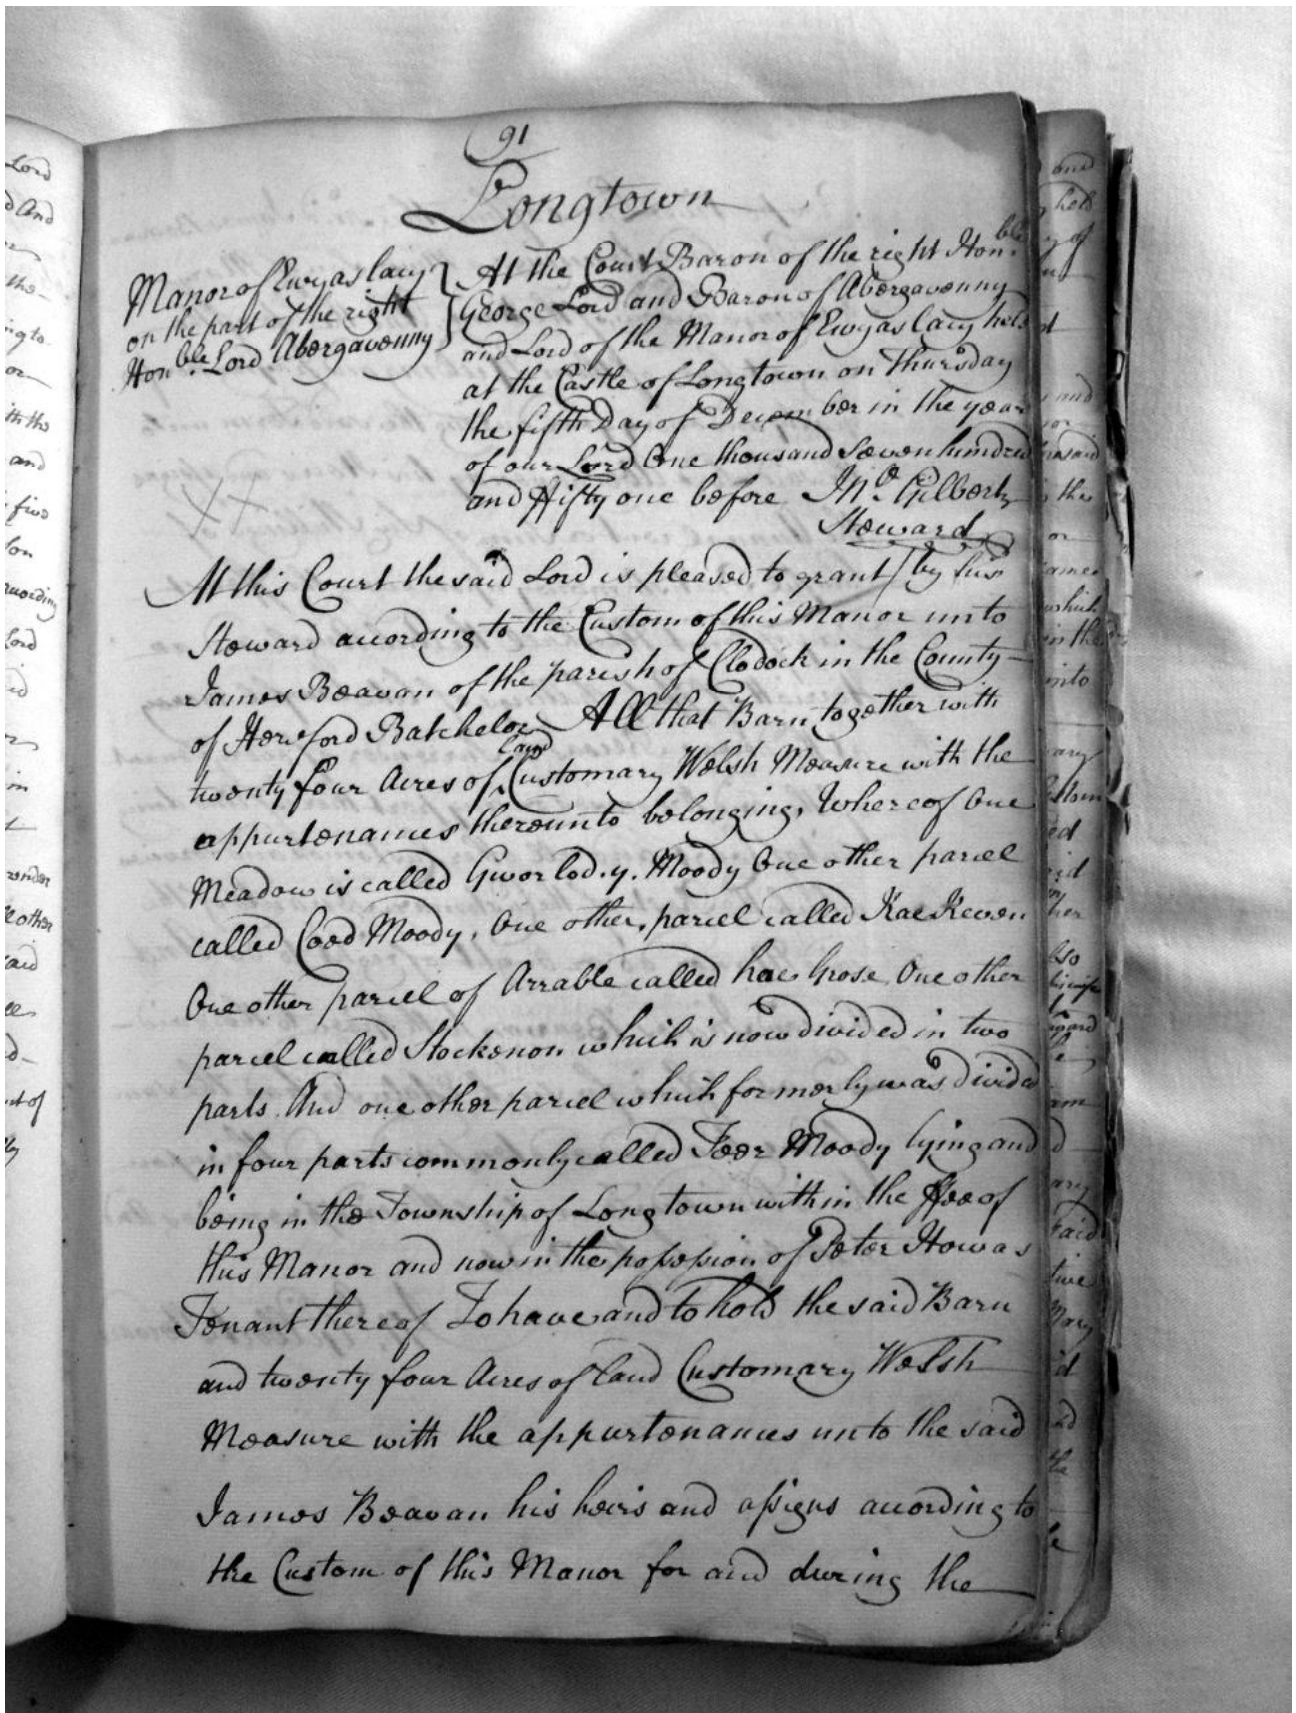 91
Longtown
Manor of Ewyas lacy
on the part of the right
Hon.ble Lord Abergavenny
At the Court Baron of the right Hon.ble
George Lord and Baron of Abergavenny
and Lord of the Manor of Ewyas lacy held
at the Castle of Longtown on Thursday
the fifth Day of December in the year
of our Lord One thousand Seven hundred
and ffifty one before Jno. Gilbert
Steward
At this Court the said Lord is pleased to grant / by his
Steward according to the Custom of this Manor unto
James Beavan of the parish of Clodock in the County
of Hereford Batchelor All that Barn together with
twenty four Acres of Land Customary Welsh Measure with the
appurtenances thereunto belonging, Whereof One
Meadow is called Gworlod.y.Moody One other parcel
called Coed Moody, One other, parcel called Kae Keven
One other parcel of Arrable called hae Grose One other
parcel called Stockenon which is now divided in two
parts And one other parcel which formerly was divided
in four parts commonly called Feer Moody lying and
being in the Township of Longtown within the ffee of
this Manor and now in the possession of Peter Howas
Tenant thereof To have and to hold the said Barn
and twenty four Acres of land Customary Welsh
Measure with the appurtenances unto the said
James Beavan his heirs and assigns according to
the Custom of this Manor for and during the